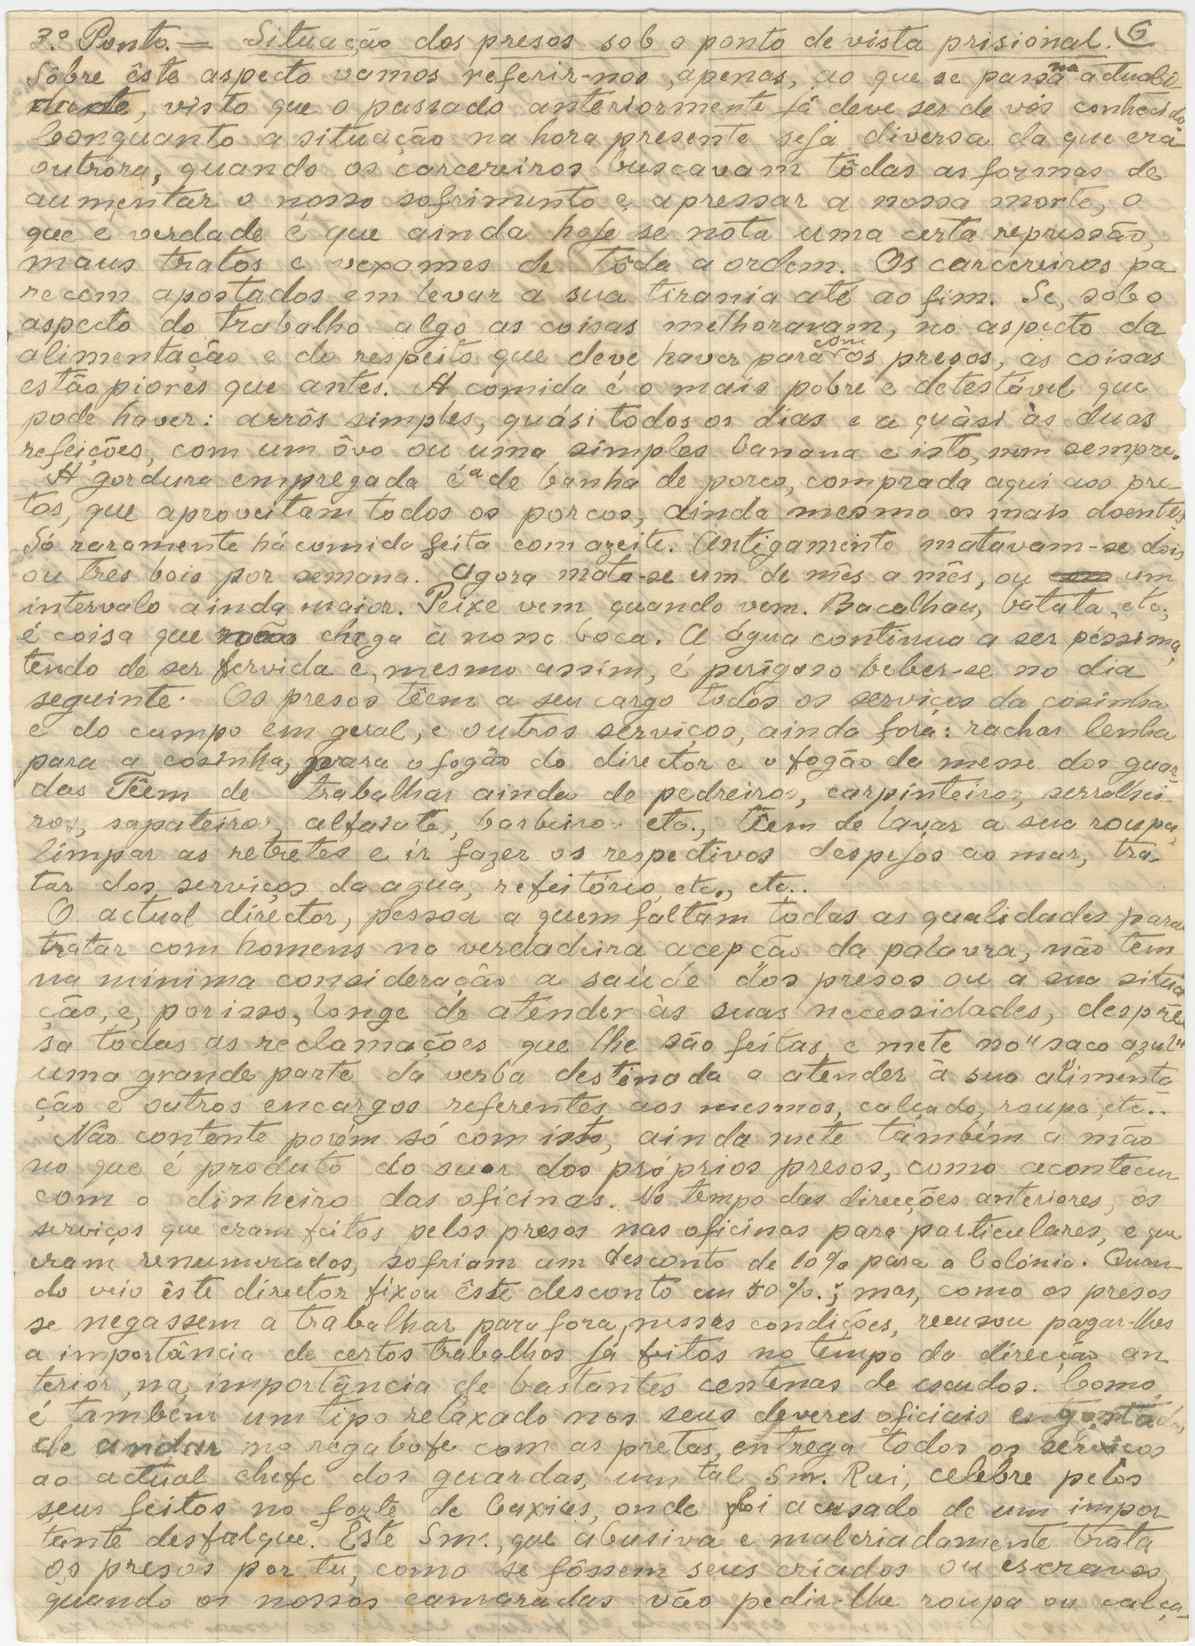 3.º Ponto. — Situação dos presos sob o ponto de vista prisional. 6
Sôbre êste aspecto vamos referir-nos, apenas, ao que se passa na actuali-
dade, visto que o passado anteriormente já deve ser de vós conhecido.
Conquanto a situação na hora presente seja diversa da que era
outróra, quando os carcereiros buscavam tôdas as formas de
aumentar o nosso sofrimento e apressar a nossa morte, o
que é verdade é que ainda hoje se nota uma certa repressão,
maus tratos e vexames de tôda a ordem. Os carcereiros pa
recem apostados em levar a sua tirania até ao fim. Se, sob o
aspecto do trabalho algo as coisas melhoraram, no aspecto da
alimentação e do respeito que deve haver para com os presos, as coisas
estão piores que antes. A comida é o mais pobre e detestável que
pode haver: arrôs simples, quási todos os dias e a quási às duas
refeições, com um ôvo ou uma simples banana e isto, nem sempre.
A gordura empregada é a de banha de porco, comprada aqui aos pre
tos, que aproveitam todos os porcos, ainda mesmo os mais doentes.
Só raramente há comida feita com azeite. Antigamente matavam-se dois
ou tres bois por semana. Agora mata-se um de mês a mês, ou um
intervalo ainda maior. Peixe vem quando vem. Bacalhau, batata, etc,
é coisa que não chega à nossa boca. A água continua a ser péssima,
tendo de ser fervida e, mesmo assim, é perigoso beber-se no dia
seguinte. Os presos têem a seu cargo todos os serviços da cosinha
e do campo em geral, e outros serviços, ainda fora: rachar lenha
para a cosinha, para o fogão do director e o fogão da messe dos guar-
das Têem de trabalhar ainda de pedreiros, carpinteiros, serralhei-
ros, sapateiros, alfaiate, barbeiro etc., têem de lavar a sua roupa,
limpar as retretes e ir fazer os respectivos despejos ao mar, tra-
tar dos serviços da agua, refeitório, etc., etc..
O actual director, pessoa a quem faltam todas as qualidades para
tratar com homens na verdadeira acepção da palavra, não tem
na minima consideração a saúde dos presos ou a sua situa
ção, e, por isso, longe de atender às suas necessidades, despre
sa todas as reclamações que lhe são feitas e mete no "saco azul"
uma grande parte da verba destinada a atender à sua alimenta
ção e outros encargos referentes aos mesmos, calçado, roupa, etc..
Não contente porém só com isto, ainda mete também a mão
no que é produto do suor dos próprios presos, como aconteceu
com o dinheiro das oficinas. No tempo das direcções anteriores, os
serviços que eram feitos pelos presos nas oficinas para particulares, e que
eram renumerados, sofriam um desconto de 10% para a Colónia. Quan-
do veio êste director fixou êste desconto em 50%.; mas, como os presos
se negassem a trabalhar para fora, nessas condições, recusou pagar-lhes
a importância de certos trabalhos já feitos no tempo da direcção an
terior, na importância de bastantes centenas de escudos. Como
é também um tipo relaxado nos seus deveres oficiais e gosta
de andar no regabofe com as pretas, entrega todos os serviços
ao actual chefe dos guardas, um tal Snr. Rui, celebre pelos
seus feitos no forte de Caxias, onde foi acusado de um impor
tante desfalque. Êste Snr., que abusiva e malcriadamente trata
os presos por tu, como se fôssem seus criados ou escravos,
quando os nossos camaradas vão pedir-lhe roupa ou calça-